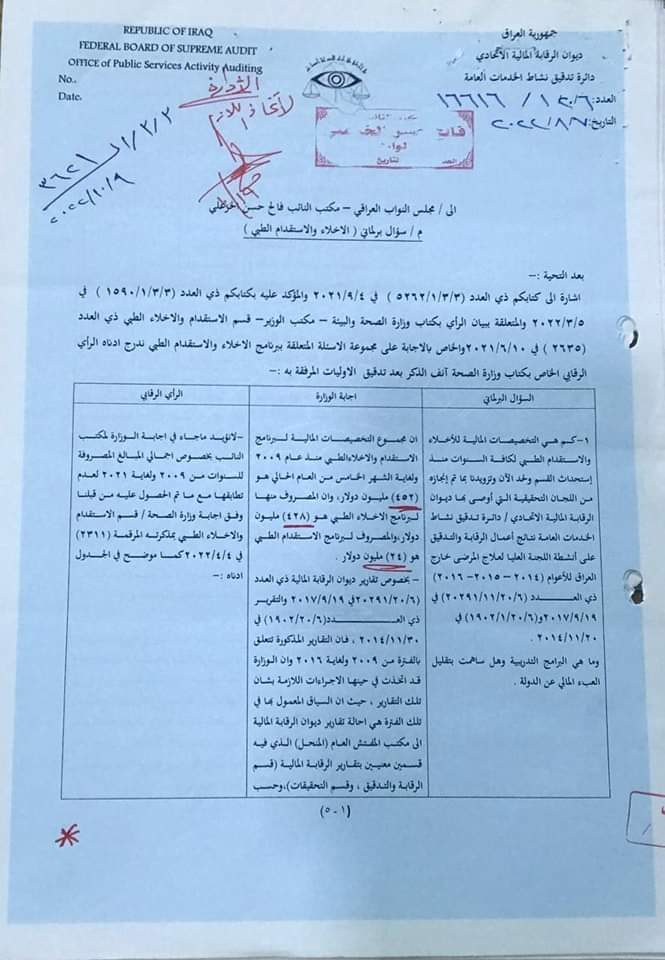 REPUBLIC OF IRAQ
FEDERAL BOARD OF SUPREME AUDIT
OFFICE of Public Services Activity Auditing
No..
Date.
جمهورية العراق
ديوان الرقابة المالية الاتحادي
دائرة تدقيق نشاط الخدمات العامة
العدد: ١٦٦١٦/١٢٠/٦
التاريخ: ٢٠٢٢/٨/٧
٣٦٢١
٢٠٢٢/١٠/٩
الى / مجلس النواب العراقي – مكتب النائب فالح حسن الخزعلي
م / سؤال برلماني ( الاخلاء والاستقدام الطبي )
بعد التحية :–
اشارة الى كتابكم ذي العدد (٥٢٦٢/١/٣/٣ ) في ٢٠٢١/٩/٤ والمؤكد عليه بكتابكم ذي العدد (١٥٩٠/١/٣/٣ ) في
٢٠٢٢/٣/٥ والمتعلقة ببيان الرأي بكتاب وزارة الصحة والبيئة – مكتب الوزير– قسم الاستقدام والاخلاء الطبي ذي العدد
(٢٦٣٥ ) في ٢٠٢١/٦/١٠ والخاص بالاجابة على مجموعة الاسئلة المتعلقة ببرنامج الاخلاء والاستقدام الطبي ندرج ادناه الرأي
الرقابي الخاص بكتاب وزارة الصحة آنف الذكر بعد تدقيق الاوليات المرفقة به :–
السؤال البرلماني
١–كم هي التخصيصات المالية للأخلاء
والاستقدام الطبي لكافة السنوات منذ
إستحداث القسم ولحد الآن وتزويدنا بما تم إنجازه
من اللجان التحقيقية التي أوصى بما ديوان
الرقابة المالية الاتحادي / دائرة تدقيق نشاط
الخدمات العامة نتائج أعمال الرقابة والتدقيق
على أنشطة اللجنة العليا لعلاج المرضى خارج
العراق للأعوام (٢٠١٤ –٢٠١٥– ٢٠١٦)
ذي العدد (٢٠٢٩١/١١/٢٠/٦) في
٢٠١٧/٩/١٩ و(١٩٠٢/١/٢٠/٦) في
٢٠١٤/١١/٢٠ .
وما هي البرامج التدريبية وهل ساهمت بتقليل
العبء المالي عن الدولة .
اجابة الوزارة
ان مجموع التخصيصات المالية لبرنامج
الاستقدام والاخلاءالطبي منذ عام ٢٠٠٩
ولغاية الشهر الخامس من العام الحالي هو
(٤٥٢) مليون دولار، وان المصروف منها
لبرنامج الاخلاء الطبي هو (٤٢٨) مليون
دولار،والمصروف لبرنامج الاستقدام الطبي
هو (٢٤) مليون دولار .
–بخصوص تقارير ديوان الرقابة المالية ذي العدد
(٢٠٢٩١/٢٠/٦)في ٢٠١٧/٩/١٩ والتقرير
ذي العـــدد(١٩٠٢/٢٠/٦) في
٢٠١٤/١١/٣٠ ، فان التقارير المذكورة تتعلق
بالفترة من ٢٠٠٩ ولغاية ٢٠١٦ وان الوزارة
قد اتخذت في حينها الاجراءات اللازمة بشان
تلك التقارير ، حيث ان السياق المعمول بما في
تلك الفترة هي احالة تقارير ديوان الرقابة المالية
الى مكتب المفتش العام (المنحل) الذي فيه
قسمين معنيين بتقارير الرقابة المالية (قسم
الرقابة والتدقيق ، وقسم التحقيقات)،وحسب
الرأي الرقابي
–لانؤيد ماجاء في اجابة الوزارة لمكتب
النائب بخصوص اجمالي المبالغ المصروفة
للسنوات من ٢٠٠٩ ولغاية ٢٠٢١ لعدم
تطابقها مع ما تم الحصول عليه من قبلنا
وفق اجابة وزارة الصحة / قسم الاستقدام
والاخلاء الطبي بمذكرته المرقمة (٢٣١١)
في ٢٠٢٢/٤/٤ كما موضح في الجدول
ادناه :–
(٥-١)